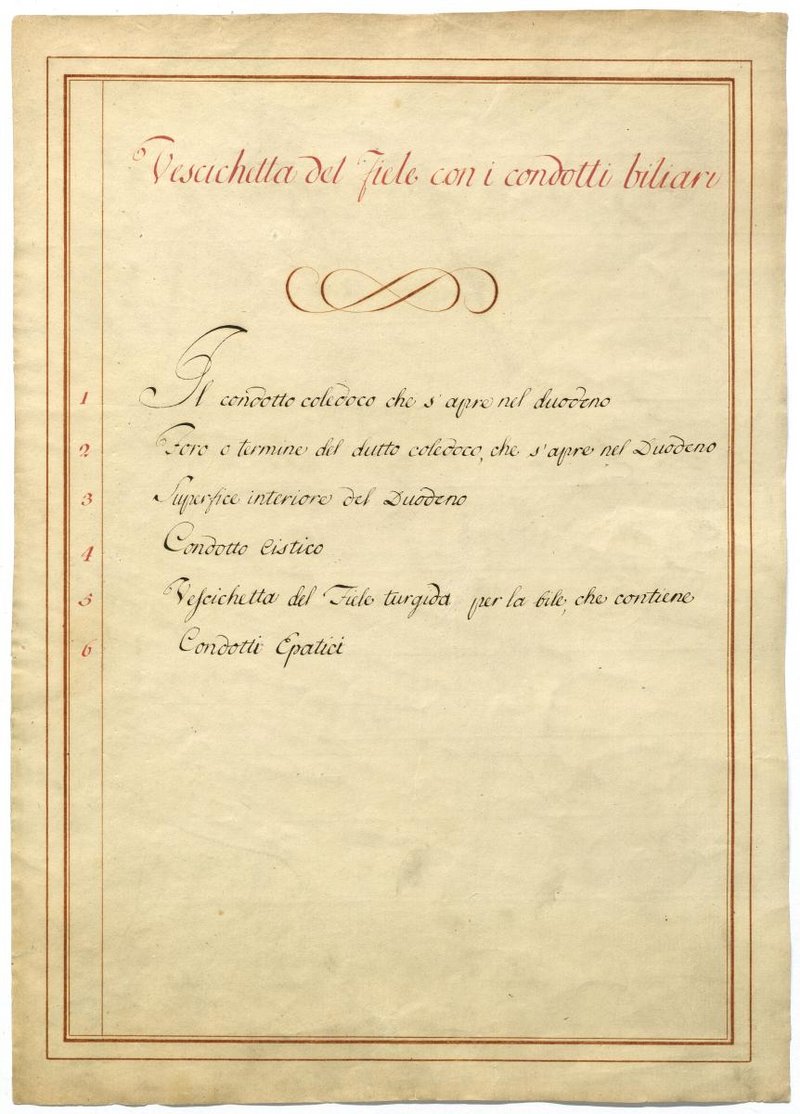 Vescichetta del Fiele con i condotti biliari
1 Il condotto coledoco che s'apre nel duodeno
2 Foro o termine del dutto coledoco, che s'apre nel Duodeno
3 Superfice interiore del Duodeno
4 Condotto Cistico
5 Vescichetta del Fiele turgida per la bile, che contiene
6 Condotti Epatici